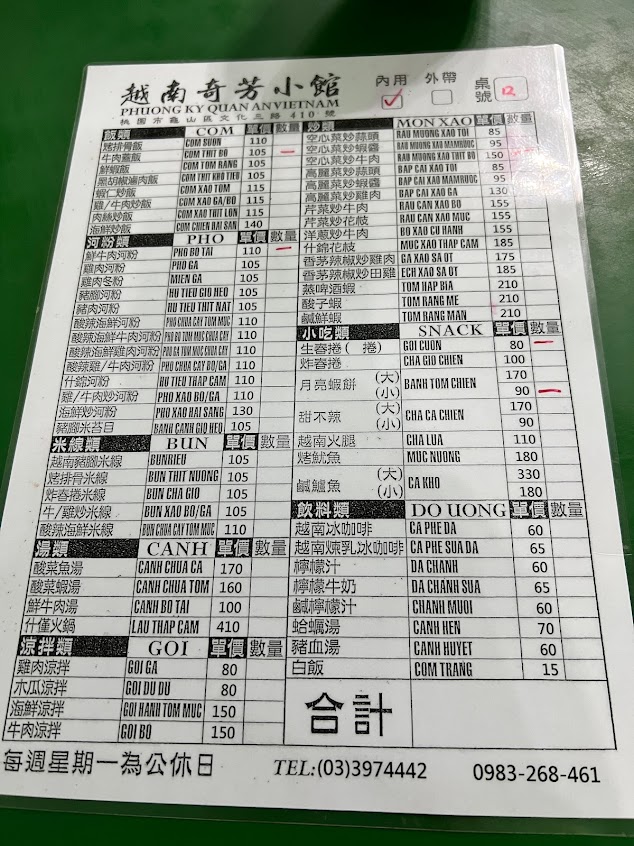 越南奇芳小館
PHUONG KY QUAN AN VIETNAM
桃園市龜山區文化三路410號
內用 外帶 桌號 12
飯類 COM 單價 數量
烤排骨飯 COM SUON 110
牛肉蓋飯 COM THIT BO 105
鮮蝦飯 COM TOM RANG 105
黑胡椒滷肉飯 COM THIT KHO TIEU 105
蝦仁炒飯 COM XAO TOM 115
雞/牛肉炒飯 COM XAO GA/BO 115
肉絲炒飯 COM XAO THIT LON 115
海鮮炒飯 COM CHIEN HAI SAN 140
河粉類 PHO 單價 數量
鮮牛肉河粉 PHO BO TAI 110
雞肉河粉 PHO GA 105
雞肉冬粉 MIEN GA 105
豬腳河粉 HU TIEU GIO HEO 105
豬肉河粉 HU TIEU THIT NAT 105
酸辣海鮮河粉 PHO CHUA CAY TOM MUC 110
酸辣海鮮牛肉河粉 PHO BO TOM MUC CHUA CAY 110
酸辣海鮮雞肉河粉 PHO GA TOM MUC CHUA CAY 110
酸辣雞/牛肉河粉 PHO CHUA CAY BO/GA 110
什錦河粉 HU TIEU THAP CAM 110
雞/牛肉炒河粉 PHO XAO BO/GA 110
海鮮炒河粉 PHO XAO HAI SANG 130
豬腳米苔目 BANH CANH GIO HEO 105
米線類 BUN 單價 數量
越南豬腳米線 BUNRIEU 105
烤排骨米線 BUN THIT NUONG 105
炸春捲米線 BUN CHA GIO 105
牛/雞炒米線 BUN XAO BO/GA 105
酸辣海鮮米線 BUN CHUA CAY TOM MUC 110
湯類 CANH 單價 數量
酸菜魚湯 CANH CHUA CA 170
酸菜蝦湯 CANH CHUA TOM 160
鮮牛肉湯 CANH BO TAI 100
什僅火鍋 LAU THAP CAM 410
涼拌類 GOI 單價 數量
雞肉涼拌 GOI GA 80
木瓜涼拌 GOI DU DU 80
海鮮涼拌 GOI HANH TOM MUC 150
牛肉涼拌 GOI BO 150
炒類 MON XAO 單價 數量
空心菜炒蒜頭 RAU MUONG XAO TOI 85
空心菜炒蝦醬 RAU MUONG XAO MAMRUOC 95
空心菜炒牛肉 RAU MUONG XAO THIT BO 150
高麗菜炒蒜頭 BAP CAI XAO TOI 85
高麗菜炒蝦醬 BAP CAI XAO MAMRUOC 95
高麗菜炒雞肉 BAP CAI XAO GA 130
芹菜炒牛肉 RAU CAN XAO BO 155
芹菜炒花枝 RAU CAN XAO MUC 155
洋蔥炒牛肉 BO XAO CU HANH 155
什錦花枝 MUC XAO THAP CAM 185
香茅辣椒炒雞肉 GA XAO SA OT 175
香茅辣椒炒田雞 ECH XAO SA OT 185
蒸啤酒蝦 TOM HAP BIA 210
酸子蝦 TOM RANG ME 210
鹹鮮蝦 TOM RANG MAN 210
小吃類 SNACK 單價 數量
生春捲( 捲) GOI CUON 80
炸春捲 CHA GIO CHIEN 100
月亮蝦餅 (大) BANH TOM CHIEN 170
(小) 90
甜不辣 (大) CHA CA CHIEN 170
(小) 90
越南火腿 CHA LUA 110
烤魷魚 MUC NUONG 180
鹹鱸魚 (大) CA KHO 330
(小) 180
飲料類 DO UONG 單價 數量
越南冰咖啡 CA PHE DA 60
越南煉乳冰咖啡 CA PHE SUA DA 65
檸檬汁 DA CHANH 60
檸檬牛奶 DA CHANH SUA 65
鹹檸檬汁 CHANH MUOI 60
蛤蠣湯 CANH HEN 70
豬血湯 CANH HUYET 60
白飯 COM TRANG 15
合計
每週星期一為公休日 TEL:(03)3974442 0983-268-461